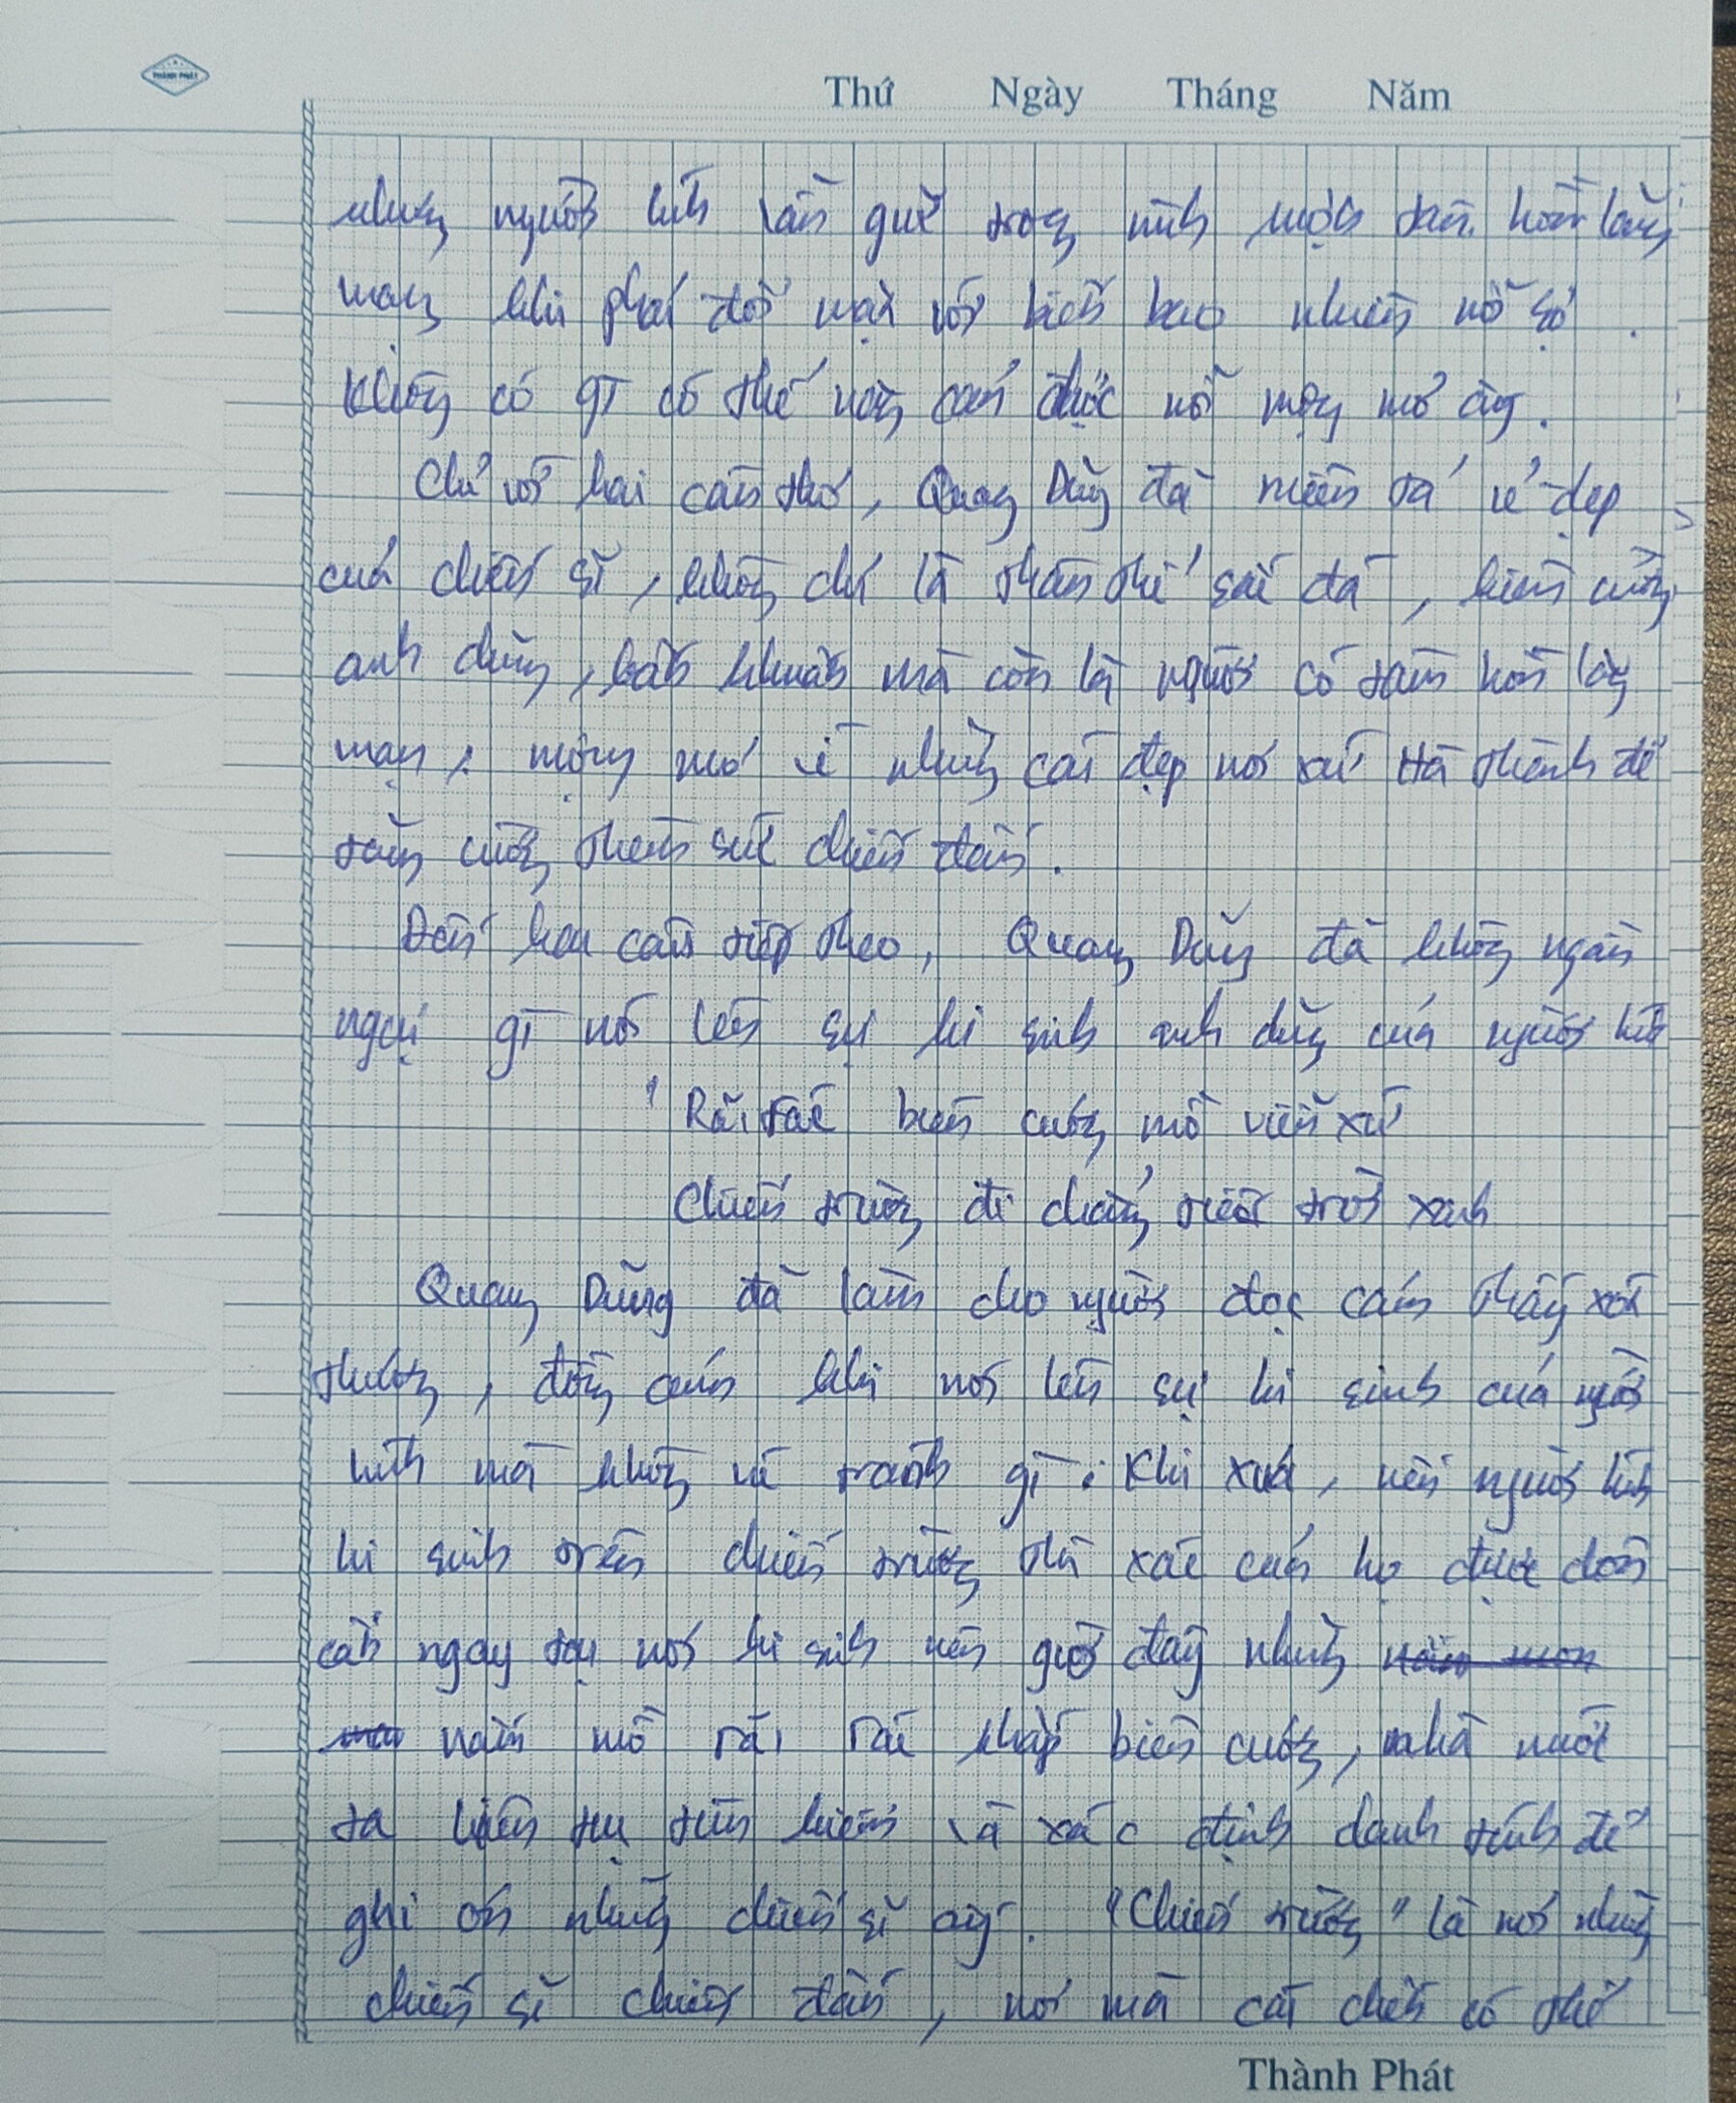 THÀNH PHÁT
Thứ Ngày Tháng Năm
những người lính vẫn giữ trong mình một tâm hồn lãng
mạn khi phải đối mặt với biết bao nhiêu nỗi sợ.
Không có gì có thể ngăn cản được nỗi mộng mơ ấy.
Chỉ với hai câu thơ, Quang Dũng đã miêu tả vẻ đẹp
của chiến sĩ, không chỉ là thân thể sắt đá, kiên cường
anh dũng, bất khuất mà còn là người có tâm hồn lãng
mạn, mộng mơ về những cái đẹp nơi xứ Hà thành để
tăng cường thêm sức chiến đấu.
Đến hai câu tiếp theo, Quang Dũng đã không ngần
ngại gì nói lên sự hi sinh anh dũng của người lính
" Rải rác biên cương mồ viễn xứ
Chiến trường đi chẳng tiếc đời xanh
Quang Dũng đã làm cho người đọc cảm thấy xót
thương, đồng cảm khi nói lên sự hi sinh của người
lính mà không né tránh gì. Khi xưa, nếu người lính
hi sinh trên chiến trường thì xác của họ được chôn
cất ngay tại nơi hi sinh nên giờ đây những
nấm mồ rải rác khắp biên cương, nhà nước
ta liên tục tìm kiếm và xác định danh tính để
ghi ơn những chiến sĩ ấy. "Chiến trường" là nơi những
chiến sĩ chiến đấu, nơi mà cái chết có thể
Thành Phát